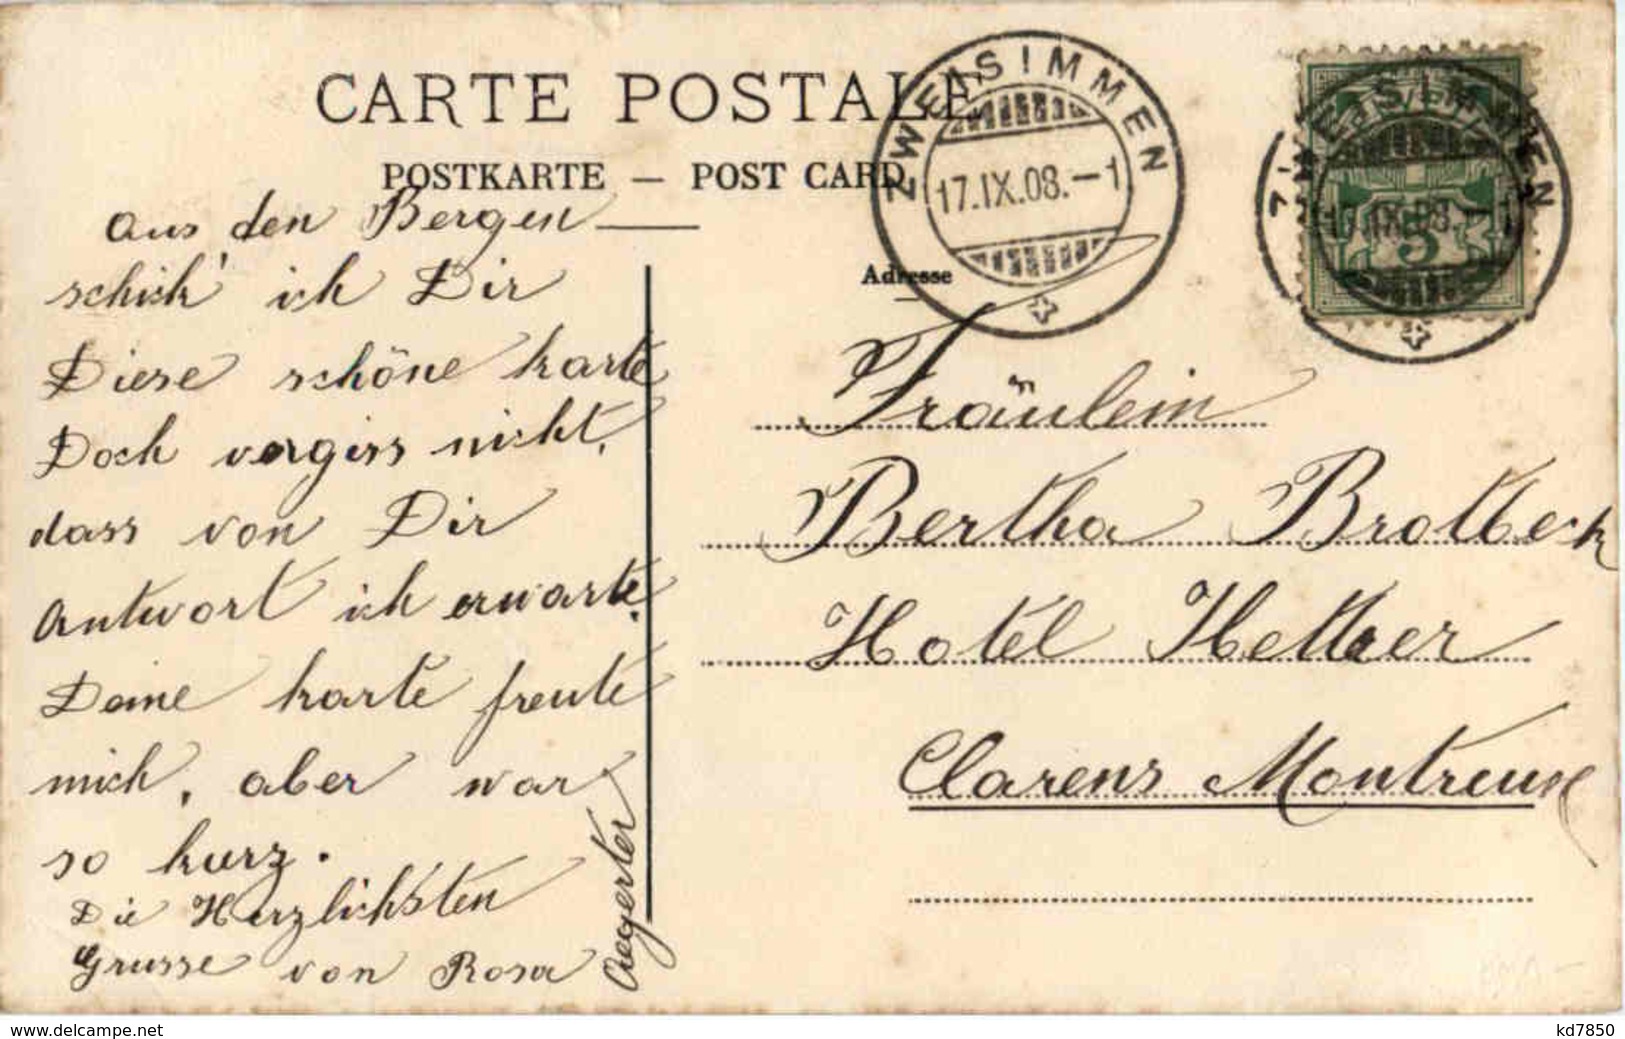 CARTE POSTALE
POSTKARTE — POST CARD
ZWEISIMMEN
17.IX.08.-1
ZWEISIMMEN
17.IX.08.-1
5
Aus den Bergen
schick' ich Dir
Diese schöne karte
Doch vergiss nicht,
dass von Dir
Antwort ich erwarte.
Deine karte freute
mich, aber war
so kurz.
Die Herzlichsten
Grüsse von Rosa
Aegerter
Adresse
Fräulein
Bertha Brotbeck
Hotel
Clarens Montreux
www.delcampe.net
kd7850